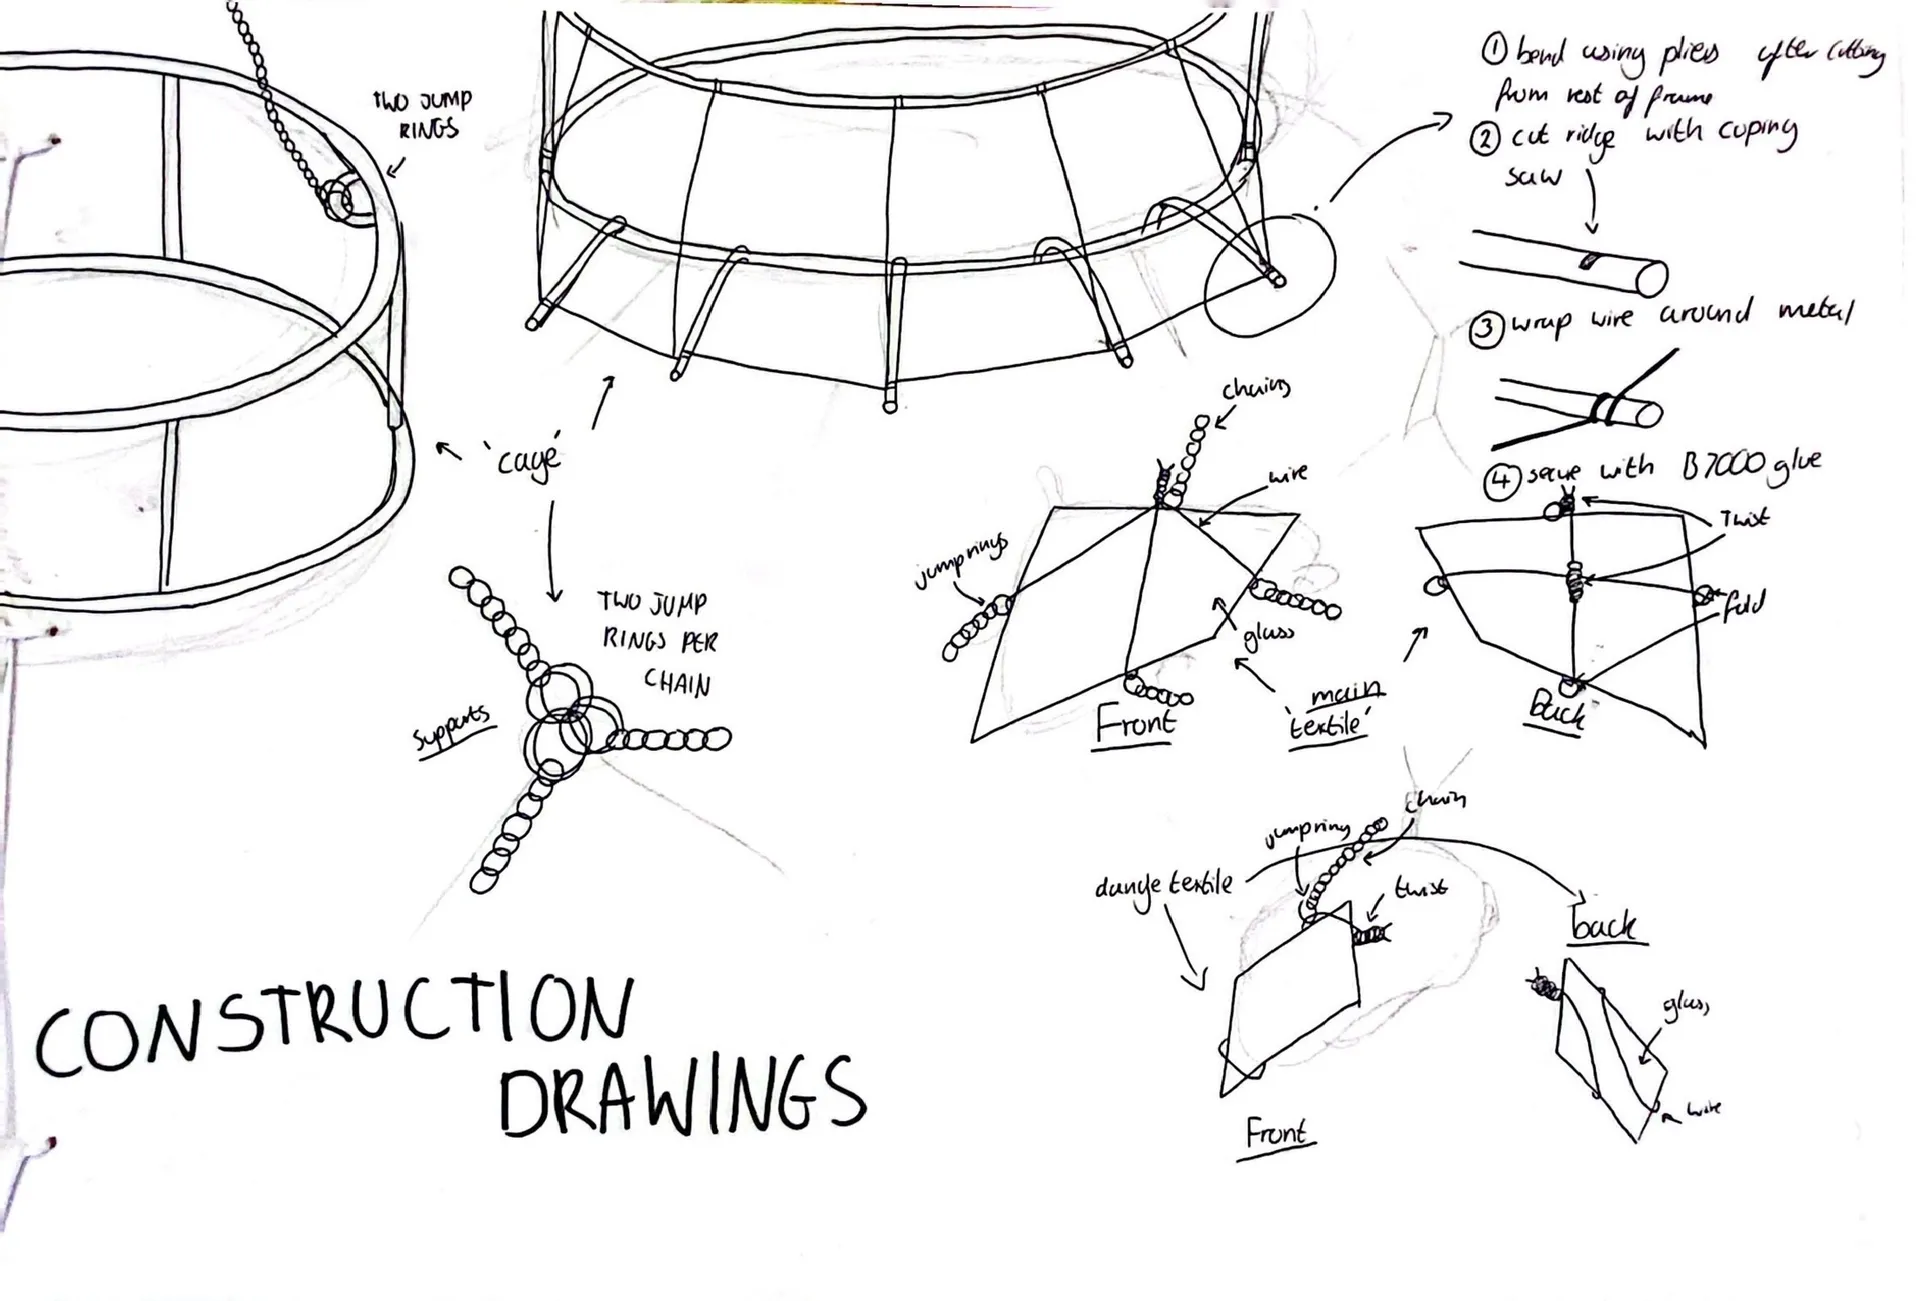 TWO JUMP
RINGS
① bend using pliers after cutting
from rest of frame
② cut ridge with coping
saw
③ wrap wire around metal
④ secure with B7000 glue
'cage'
TWO JUMP
RINGS PER
CHAIN
supports
chains
wire
jumprings
glass
Front
'main
textile'
Twist
fold
Back
jumpring
chain
twist
back
glass
wire
Front
CONSTRUCTION
DRAWINGS